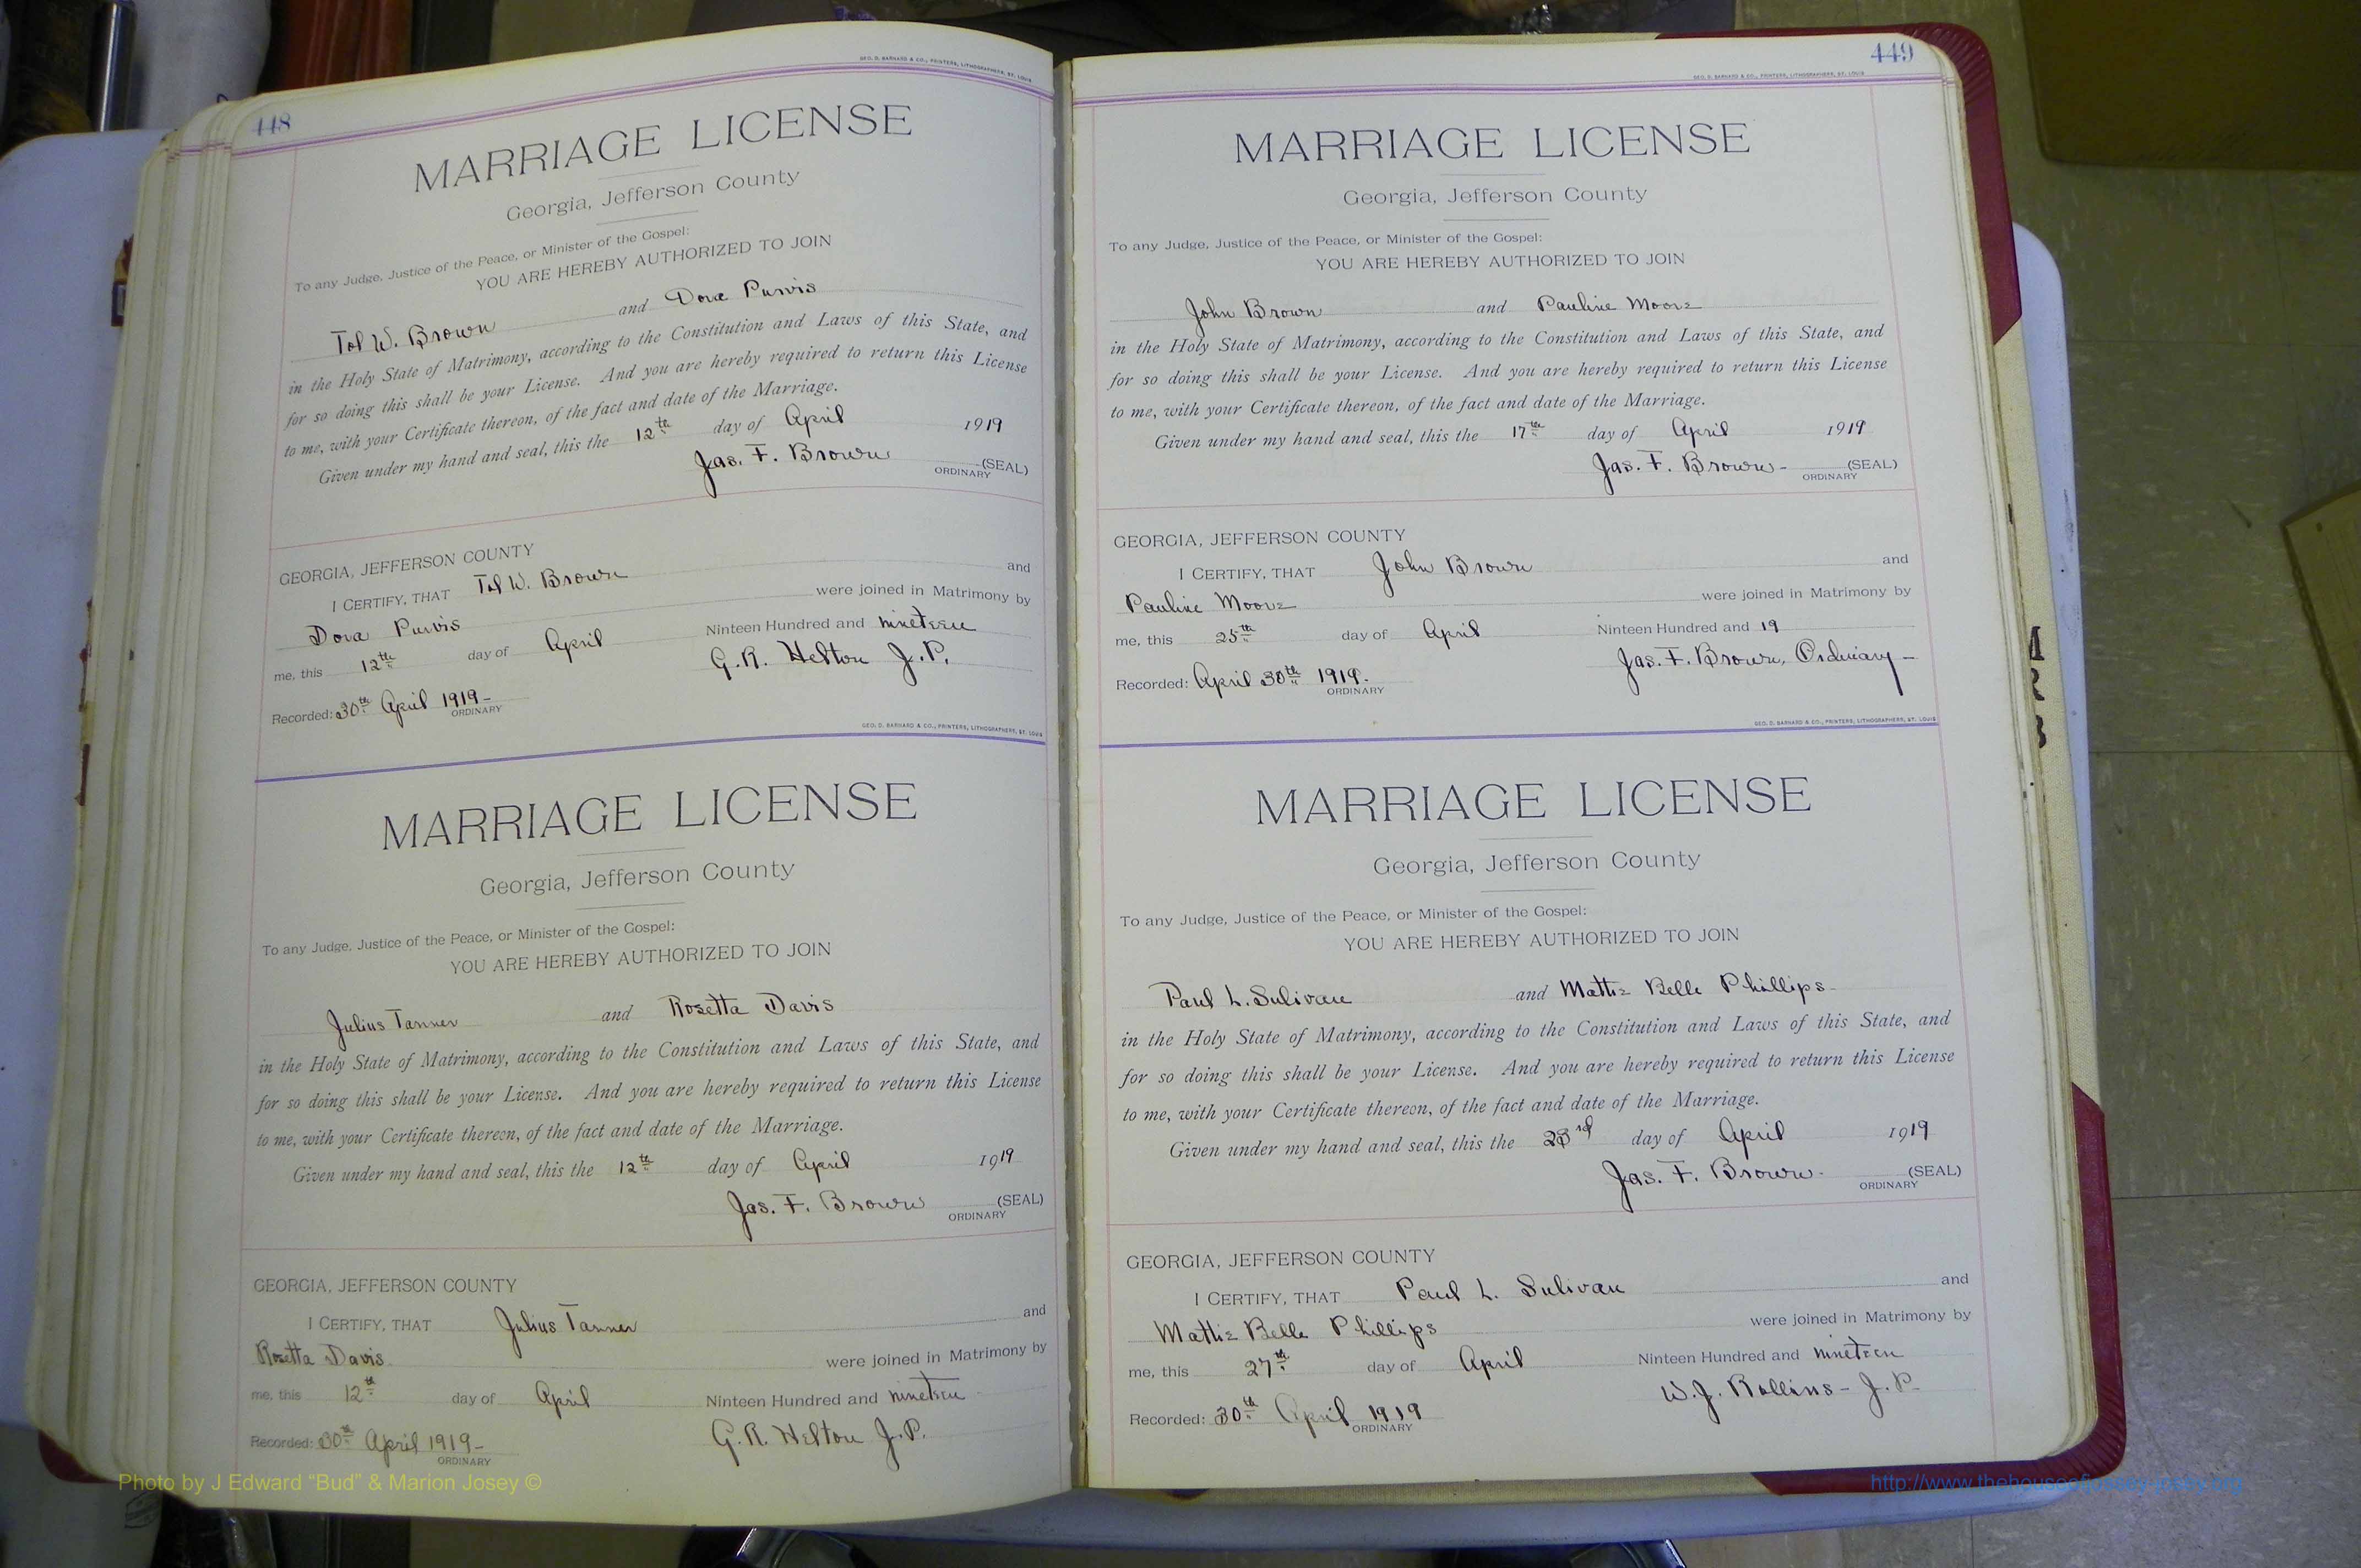 448
GEO. D. BARNARD & CO., PRINTERS, LITHOGRAPHERS, ST. LOUIS
MARRIAGE LICENSE
Georgia, Jefferson County
To any Judge, Justice of the Peace, or Minister of the Gospel:
YOU ARE HEREBY AUTHORIZED TO JOIN
Tol W. Brown and Dora Purvis
in the Holy State of Matrimony, according to the Constitution and Laws of this State, and
for so doing this shall be your License. And you are hereby required to return this License
to me, with your Certificate thereon, of the fact and date of the Marriage.
Given under my hand and seal, this the 12th day of April 1919
Jas. F. Brown (SEAL)
ORDINARY
GEORGIA, JEFFERSON COUNTY
I CERTIFY, THAT Tol W. Brown and
Dora Purvis were joined in Matrimony by
me, this 12th day of April Ninteen Hundred and nineteen
G. R. Helton J.P.
Recorded: 30th April 1919-
ORDINARY
GEO. D. BARNARD & CO., PRINTERS, LITHOGRAPHERS, ST. LOUIS
MARRIAGE LICENSE
Georgia, Jefferson County
To any Judge, Justice of the Peace, or Minister of the Gospel:
YOU ARE HEREBY AUTHORIZED TO JOIN
Julius Tanner and Rosetta Davis
in the Holy State of Matrimony, according to the Constitution and Laws of this State, and
for so doing this shall be your License. And you are hereby required to return this License
to me, with your Certificate thereon, of the fact and date of the Marriage.
Given under my hand and seal, this the 12th day of April 1919
Jas. F. Brown (SEAL)
ORDINARY
GEORGIA, JEFFERSON COUNTY
I CERTIFY, THAT Julius Tanner and
Rosetta Davis were joined in Matrimony by
me, this 12th day of April Ninteen Hundred and nineteen
G. R. Helton J.P.
Recorded: 30th April 1919-
ORDINARY
449
GEO. D. BARNARD & CO., PRINTERS, LITHOGRAPHERS, ST. LOUIS
MARRIAGE LICENSE
Georgia, Jefferson County
To any Judge, Justice of the Peace, or Minister of the Gospel:
YOU ARE HEREBY AUTHORIZED TO JOIN
John Brown and Pauline Moore
in the Holy State of Matrimony, according to the Constitution and Laws of this State, and
for so doing this shall be your License. And you are hereby required to return this License
to me, with your Certificate thereon, of the fact and date of the Marriage.
Given under my hand and seal, this the 17th day of April 1919
Jas. F. Brown- (SEAL)
ORDINARY
GEORGIA, JEFFERSON COUNTY
I CERTIFY, THAT John Brown and
Pauline Moore were joined in Matrimony by
me, this 25th day of April Ninteen Hundred and 19
Jas. F. Brown, Ordinary-
Recorded: April 30th 1919.
ORDINARY
GEO. D. BARNARD & CO., PRINTERS, LITHOGRAPHERS, ST. LOUIS
MARRIAGE LICENSE
Georgia, Jefferson County
To any Judge, Justice of the Peace, or Minister of the Gospel:
YOU ARE HEREBY AUTHORIZED TO JOIN
Paul L. Sulivan and Mattie Belle Phillips-
in the Holy State of Matrimony, according to the Constitution and Laws of this State, and
for so doing this shall be your License. And you are hereby required to return this License
to me, with your Certificate thereon, of the fact and date of the Marriage.
Given under my hand and seal, this the 23rd day of April 1919
Jas. F. Brown- (SEAL)
ORDINARY
GEORGIA, JEFFERSON COUNTY
I CERTIFY, THAT Paul L. Sulivan and
Mattie Belle Phillips were joined in Matrimony by
me, this 27th day of April Ninteen Hundred and nineteen
W. J. Rollins- J. P-
Recorded: 30th April 1919
ORDINARY
Photo by J Edward “Bud” & Marion Josey ©